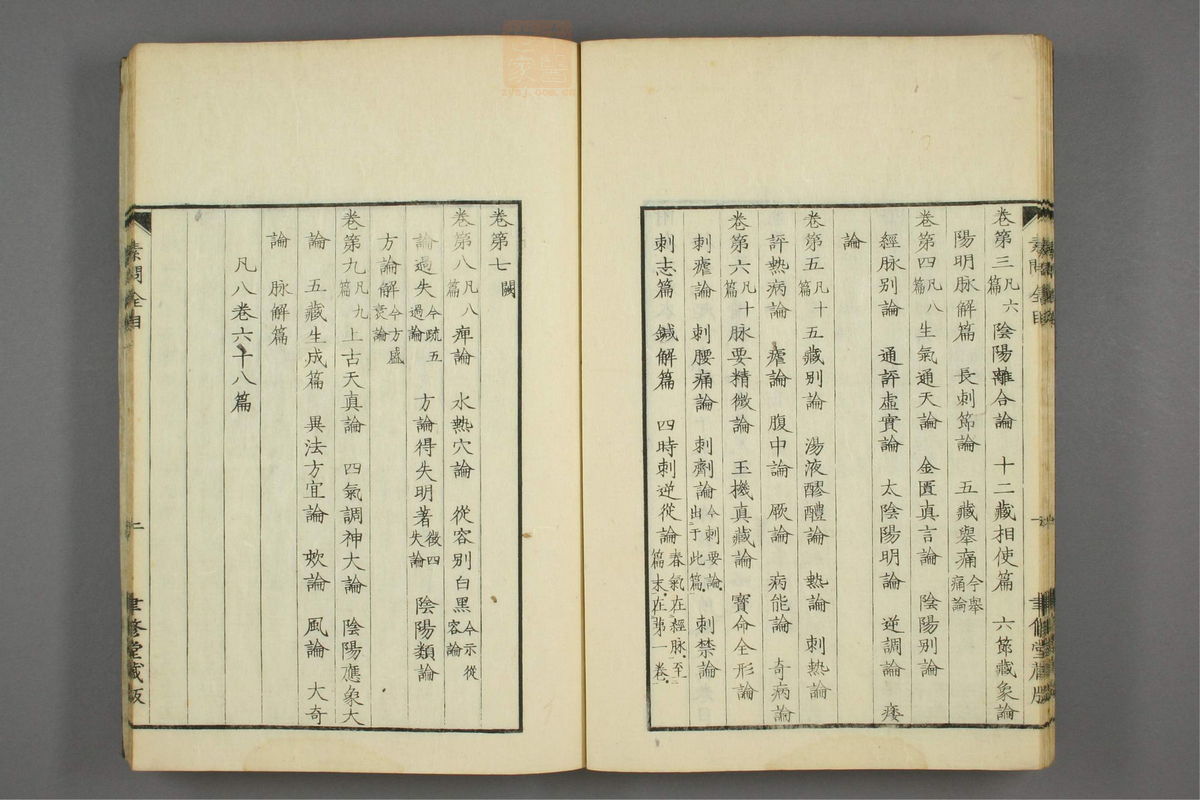 卷第三凡六篇 陰陽離合論 十二藏相使篇 六節藏象論
陽明脉解篇 長刺節論 五藏舉痛今舉痛論
卷第四凡八篇 生氣通天論 金匱真言論 陰陽別論
經脉別論 通評虛實論 太陰陽明論 逆調論 痿
論
卷第五凡十篇 五藏別論 湯液醪醴論 熱論 刺熱論
評熱病論 瘧論 腹中論 厥論 病能論 奇病論
卷第六凡十篇 脉要精微論 玉機真藏論 寶命全形論
刺瘧論 刺腰痛論 刺劑論今刺要論出于此篇 刺禁論
刺志篇 鍼解篇 四時刺逆從論春氣在經脉至篇末在第一卷
素問全目
聿修堂藏版
卷第七闕
卷第八凡八篇 痺論 水熱穴論 從容別白黑今示從容論
論過失今疏五過論 方論得失明著徵四失論 陰陽類論
方論解今方盛衰論
卷第九凡九篇 上古天真論 四氣調神大論 陰陽應象大
論 五藏生成篇 異法方宜論 欬論 風論 大奇
論 脉解篇
凡八卷六十八篇
素問全目
二
聿修堂藏版